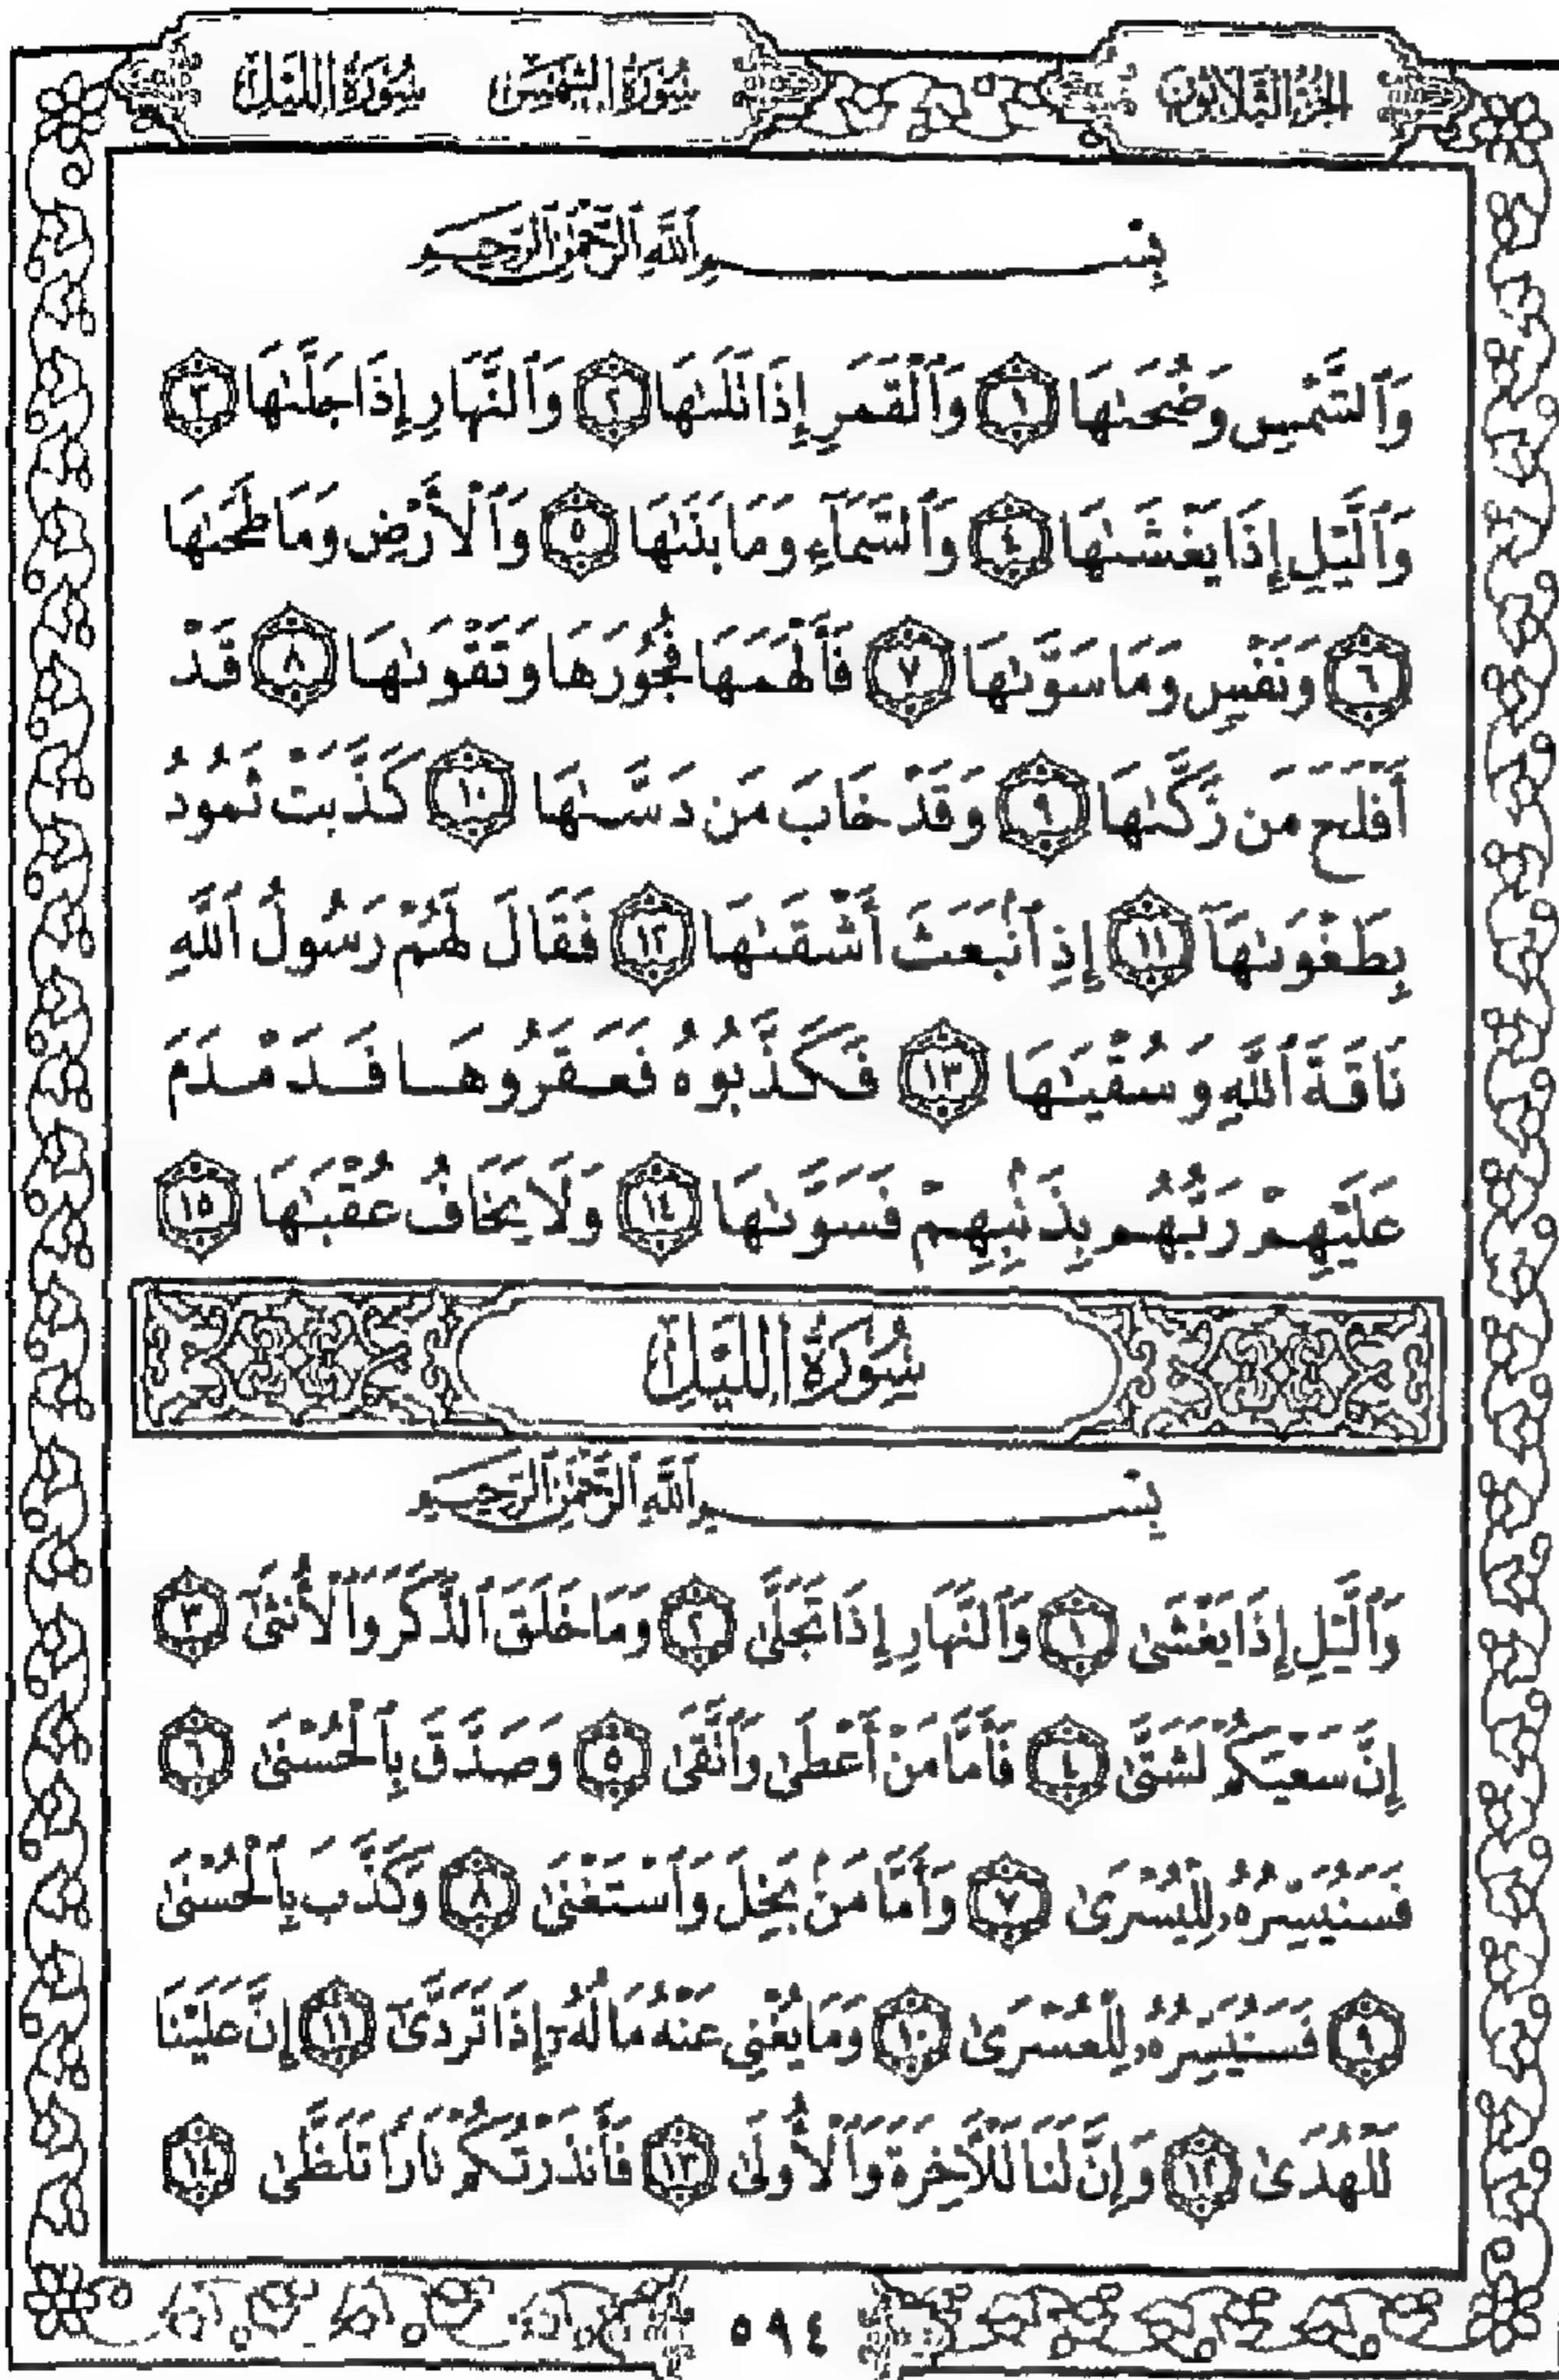 الجزء الثلاثون سورة الشمس سورة الليل
بِسْمِ ٱللَّهِ ٱلرَّحْمَٰنِ ٱلرَّحِيمِ
وَٱلشَّمْسِ وَضُحَىٰهَا ١ وَٱلْقَمَرِ إِذَا تَلَىٰهَا ٢ وَٱلنَّهَارِ إِذَا جَلَّىٰهَا ٣
وَٱلَّيْلِ إِذَا يَغْشَىٰهَا ٤ وَٱلسَّمَآءِ وَمَا بَنَىٰهَا ٥ وَٱلْأَرْضِ وَمَا طَحَىٰهَا
٦ وَنَفْسٍ وَمَا سَوَّىٰهَا ٧ فَأَلْهَمَهَا فُجُورَهَا وَتَقْوَىٰهَا ٨ قَدْ
أَفْلَحَ مَن زَكَّىٰهَا ٩ وَقَدْ خَابَ مَن دَسَّىٰهَا ١٠ كَذَّبَتْ ثَمُودُ
بِطَغْوَىٰهَآ ١١ إِذِ ٱنۢبَعَثَ أَشْقَىٰهَا ١٢ فَقَالَ لَهُمْ رَسُولُ ٱللَّهِ
نَاقَةَ ٱللَّهِ وَسُقْيَٰهَا ١٣ فَكَذَّبُوهُ فَعَقَرُوهَا فَدَمْدَمَ
عَلَيْهِمْ رَبُّهُم بِذَنۢبِهِمْ فَسَوَّىٰهَا ١٤ وَلَا يَخَافُ عُقْبَٰهَا ١٥
سُورَةُ اللَّيْلِ
بِسْمِ ٱللَّهِ ٱلرَّحْمَٰنِ ٱلرَّحِيمِ
وَٱلَّيْلِ إِذَا يَغْشَىٰ ١ وَٱلنَّهَارِ إِذَا تَجَلَّىٰ ٢ وَمَا خَلَقَ ٱلذَّكَرَ وَٱلْأُنثَىٰٓ ٣
إِنَّ سَعْيَكُمْ لَشَتَّىٰ ٤ فَأَمَّا مَنْ أَعْطَىٰ وَٱتَّقَىٰ ٥ وَصَدَّقَ بِٱلْحُسْنَىٰ ٦
فَسَنُيَسِّرُهُۥ لِلْيُسْرَىٰ ٧ وَأَمَّا مَنۢ بَخِلَ وَٱسْتَغْنَىٰ ٨ وَكَذَّبَ بِٱلْحُسْنَىٰ
٩ فَسَنُيَسِّرُهُۥ لِلْعُسْرَىٰ ١٠ وَمَا يُغْنِى عَنْهُ مَالُهُۥٓ إِذَا تَرَدَّىٰٓ ١١ إِنَّ عَلَيْنَا
لَلْهُدَىٰ ١٢ وَإِنَّ لَنَا لَلْـَٔاخِرَةَ وَٱلْأُولَىٰ ١٣ فَأَنذَرْتُكُمْ نَارًا تَلَظَّىٰ ١٤
٥٩٤